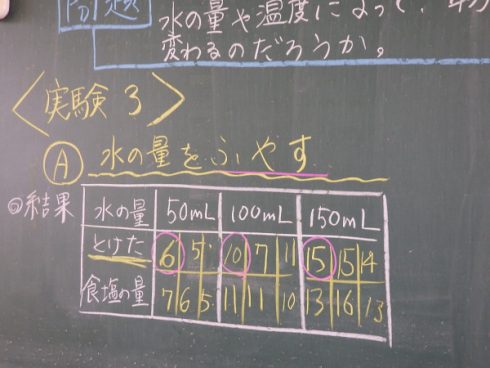 問題
水の量や温度によって、
変わるのだろうか。
〈実験3〉
Ⓐ 水の量をふやす
◎結果 水の量 50mL 100mL 150mL
とけた 6 5 10 7 11 15 15 14
食塩の量 7 6 5 11 11 10 13 16 13